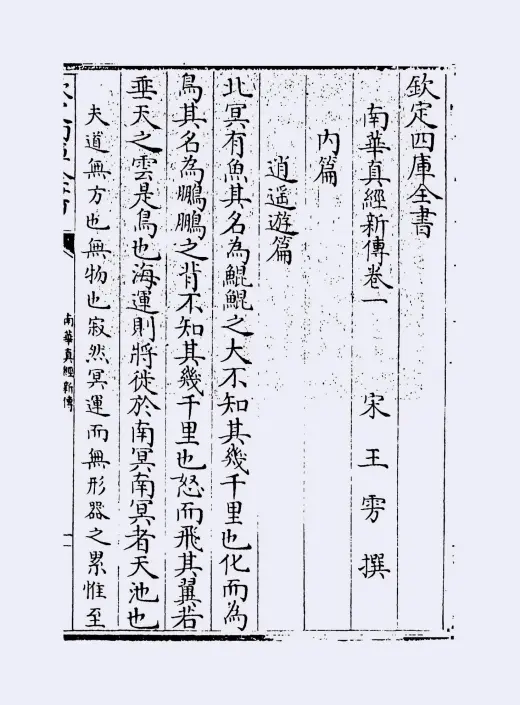 欽定四庫全書
南華真經新傳卷一 宋 王雱 撰
內篇
逍遥遊篇
北冥有魚其名為鯤鯤之大不知其幾千里也化而為
鳥其名為鵬鵬之背不知其幾千里也怒而飛其翼若
垂天之雲是鳥也海運則將徙於南冥南冥者天池也
夫道無方也無物也寂然冥運而無形器之累惟至
南華真經新傳